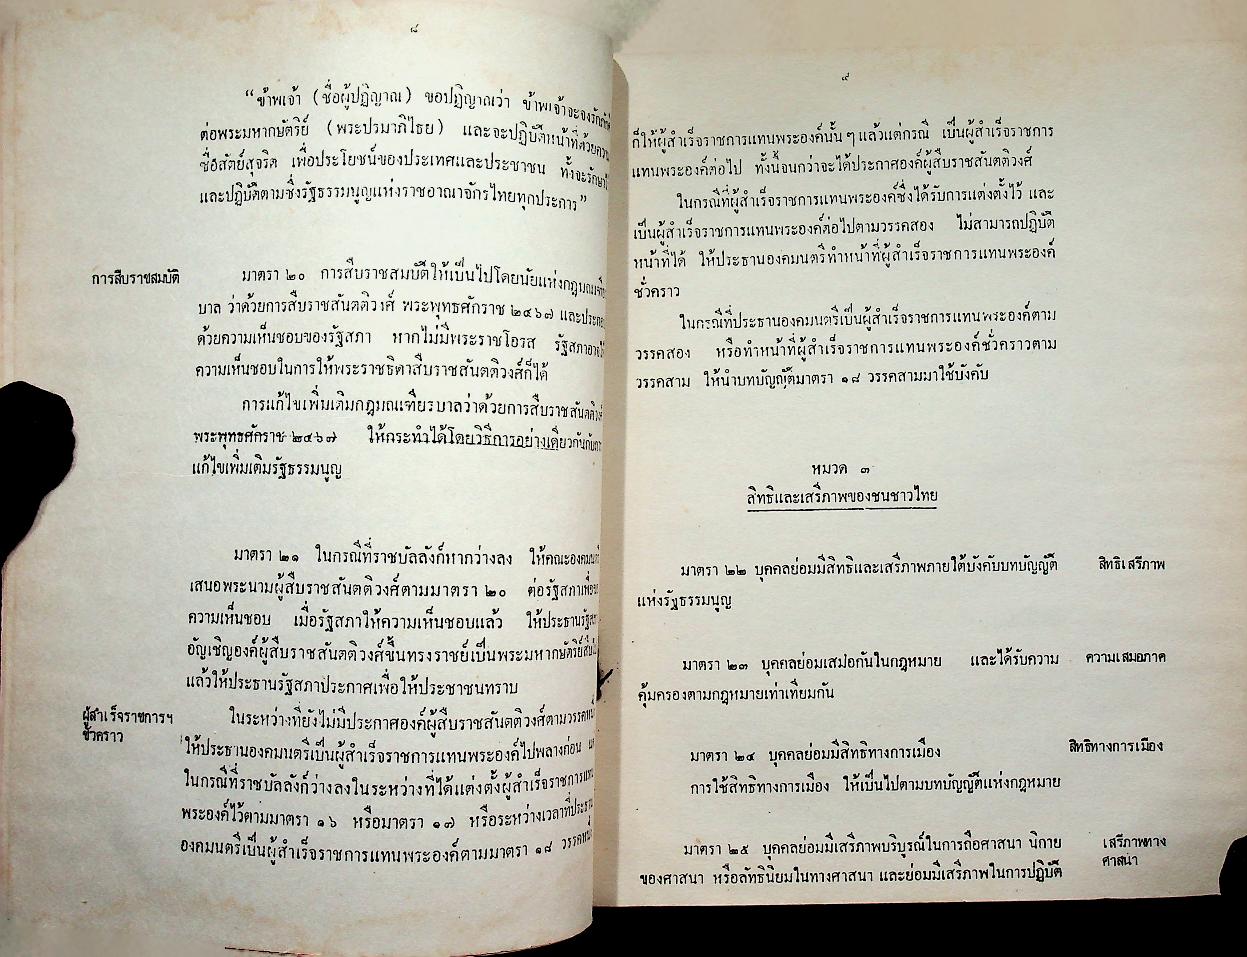 ๘
“ข้าพเจ้า (ชื่อผู้ปฏิญาณ) ขอปฏิญาณว่า ข้าพเจ้าจะจงรักภักดี
ต่อพระมหากษัตริย์ (พระปรมาภิไธย) และจะปฏิบัติหน้าที่ด้วยความ
ซื่อสัตย์สุจริต เพื่อประโยชน์ของประเทศและประชาชน ทั้งจะรักษาไว้
และปฏิบัติตามซึ่งรัฐธรรมนูญแห่งราชอาณาจักรไทยทุกประการ”
การสืบราชสมบัติ
มาตรา ๒๐ การสืบราชสมบัติให้เป็นไปโดยนัยแห่งกฎมณเฑียร
บาล ว่าด้วยการสืบราชสันตติวงศ์ พระพุทธศักราช ๒๔๖๗ และประกอบ
ด้วยความเห็นชอบของรัฐสภา หากไม่มีพระราชโอรส รัฐสภาอาจให้
ความเห็นชอบในการให้พระราชธิดาสืบราชสันตติวงศ์ก็ได้
การแก้ไขเพิ่มเติมกฎมณเฑียรบาลว่าด้วยการสืบราชสันตติวงศ์
พระพุทธศักราช ๒๔๖๗ ให้กระทำได้โดยวิธีการอย่างเดียวกันกับการ
แก้ไขเพิ่มเติมรัฐธรรมนูญ
มาตรา ๒๑ ในกรณีที่ราชบัลลังก์หากว่างลง ให้คณะองคมนตรี
เสนอพระนามผู้สืบราชสันตติวงศ์ตามมาตรา ๒๐ ต่อรัฐสภาเพื่อขอ
ความเห็นชอบ เมื่อรัฐสภาให้ความเห็นชอบแล้ว ให้ประธานรัฐสภา
อัญเชิญองค์ผู้สืบราชสันตติวงศ์ขึ้นทรงราชย์เป็นพระมหากษัตริย์สืบไป
แล้วให้ประธานรัฐสภาประกาศเพื่อให้ประชาชนทราบ
ผู้สำเร็จราชการฯ
ชั่วคราว
ในระหว่างที่ยังไม่มีประกาศองค์ผู้สืบราชสันตติวงศ์ตามวรรคหนึ่ง
ให้ประธานองคมนตรีเป็นผู้สำเร็จราชการแทนพระองค์ไปพลางก่อน แต่
ในกรณีที่ราชบัลลังก์ว่างลงในระหว่างที่ได้แต่งตั้งผู้สำเร็จราชการแทน
พระองค์ไว้ตามมาตรา ๑๖ หรือมาตรา ๑๗ หรือระหว่างเวลาที่ประธาน
องคมนตรีเป็นผู้สำเร็จราชการแทนพระองค์ตามมาตรา ๑๘ วรรคหนึ่ง
๙
ก็ให้ผู้สำเร็จราชการแทนพระองค์นั้น ๆ แล้วแต่กรณี เป็นผู้สำเร็จราชการ
แทนพระองค์ต่อไป ทั้งนี้จนกว่าจะได้ประกาศองค์ผู้สืบราชสันตติวงศ์
ในกรณีที่ผู้สำเร็จราชการแทนพระองค์ซึ่งได้รับการแต่งตั้งไว้ และ
เป็นผู้สำเร็จราชการแทนพระองค์ต่อไปตามวรรคสอง ไม่สามารถปฏิบัติ
หน้าที่ได้ ให้ประธานองคมนตรีทำหน้าที่ผู้สำเร็จราชการแทนพระองค์
ชั่วคราว
ในกรณีที่ประธานองคมนตรีเป็นผู้สำเร็จราชการแทนพระองค์ตาม
วรรคสอง หรือทำหน้าที่ผู้สำเร็จราชการแทนพระองค์ชั่วคราวตาม
วรรคสาม ให้นำบทบัญญัติมาตรา ๑๘ วรรคสามมาใช้บังคับ
หมวด ๓
สิทธิและเสรีภาพของชนชาวไทย
มาตรา ๒๒ บุคคลย่อมมีสิทธิและเสรีภาพภายใต้บังคับบทบัญญัติ สิทธิเสรีภาพ
แห่งรัฐธรรมนูญ
มาตรา ๒๓ บุคคลย่อมเสมอกันในกฎหมาย และได้รับความ ความเสมอภาค
คุ้มครองตามกฎหมายเท่าเทียมกัน
มาตรา ๒๔ บุคคลย่อมมีสิทธิทางการเมือง สิทธิทางการเมือง
การใช้สิทธิทางการเมือง ให้เป็นไปตามบทบัญญัติแห่งกฎหมาย
มาตรา ๒๕ บุคคลย่อมมีเสรีภาพบริบูรณ์ในการถือศาสนา นิกาย เสรีภาพทาง
ศาสนา
ของศาสนา หรือลัทธินิยมในทางศาสนา และย่อมมีเสรีภาพในการปฏิบัติ